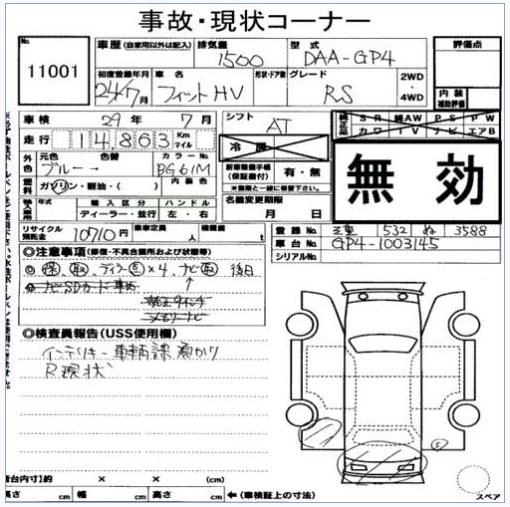 事故・現状コーナー
No. 11001
車歴 (自家用以外は記入) 排気量 1500 型式 DAA-GP4 評価点
初度登録年月 24/7月 車名 フィットHV 形状・ドア数 グレード RS 2WD・4WD 内装補助評価
車検 29年 7月 シフト AT 純正品 SR 純AW PS PW
カワ TV ナビ エアB
走行 14,863 Km マイル 冷房
無効
外色 元色 ブルー 色替 → カラーNo. BG61M
内装色
燃料 ガソリン・軽油・( )
新車整備手帳(保証書付) 有・無
※画像と一緒に梱包下さい。
年式 輸入区分 ハンドル
ディーラー・並行 左・右
名義変更期限 月 日
リサイクル預託金 10710円 乗車定員 人 積載量 t
登録No. 三重 532 ぬ 3588
車台No. GP4-1003145
シリアルNo.
◎注意事項(修復・不具合箇所および状態等)
保、取、×4、ナビ取 後日
ナビSDカード
純正9インチ
メモリーナビ
◎検査員報告(USS使用欄)
インテリキー
R現状
荷台内寸)約 × × cm
長さ cm 幅 cm 高さ cm ←(車検証上の寸法)
スペア